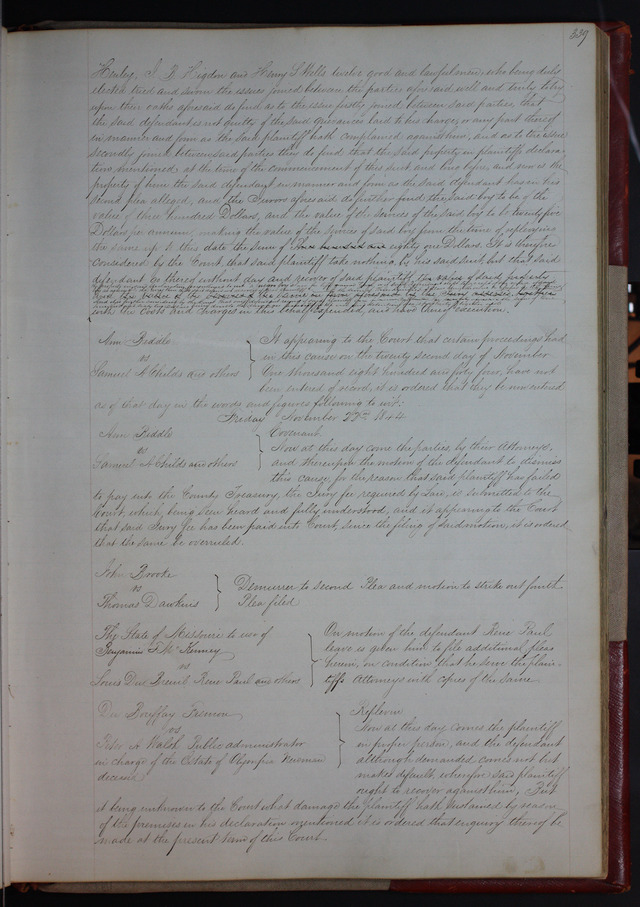 339
Henley, J. B Higdon and Henry S Wells twelve good and lawful men, who being duly
elected tried and sworn the issues joined between the parties aforesaid well and truly to try
upon their oaths aforesaid do find as to the issue firstly joined between said parties, that
the said defendant is not guilty of the said grievances laid to his charge, or any part thereof
in manner and form as the said plaintiff hath complained against him, and as to the issue
secondly joined between said parties they do find that the said property in plaintiffs declara-
tion mentioned at the time of the commencement of this suit and long before, and now is the
property of him the said defendant in manner and form as the said defendant has in his
second plea alleged, and the Jurors aforesaid do further find the said boy to be of the
value of three hundred Dollars, and the value of the services of the said boy to be twenty five
Dollars per annum, making the value of the services of said boy from the time of replevying
the same up to this date the sum of eighty one Dollars. It is therefore
considered by the Court that said plaintiff take nothing by his said suit, but that said
defendant go thereof without day and recover of said plaintiff, the value of said property
and the value of the services of the same in form aforesaid by the Jury assessed, together
with the Costs and charges in this behalf expended, and have thereof execution.
Ann Biddle
vs
Samuel A Childs and others
It appearing to the Court that certain proceedings had
in this cause on the twenty second day of November
One thousand eight hundred and forty four, have not
been entered of record, it is ordered that they be now entered
as of that day in the words and figures following to wit:
Friday November 22nd 1844
Ann Biddle
vs
Samuel A Childs and others
Covenant
Now at this day come the parties, by their Attorneys,
and thereupon the motion of the defendant to dismiss
this cause, for the reason that said plaintiff has failed
to pay into the County Treasury, the Jury fee required by Law, is submitted to the
Court, which, being seen heard and fully understood, and it appearing to the Court
that said Jury fee has been paid into Court, since the filing of said motion, it is ordered
that the same be overruled.
John Brooke
vs
Thomas Dawkins
Demurrer to second Plea and motion to strike out fourth
Plea filed
The State of Missouri to use of
Benjamin F. McKenney
vs
Louis Du Breuil Rene Paul and others
On motion of the defendant Rene Paul
leave is given him to file additional pleas
herein, on condition that he serve the plain-
tiffs Attorneys with copies of the same.
Du Bouffay Fremon
vs
Peter A Walsh Public administrator
in charge of the Estate of Olympia Newman
deceased
Replevin
Now at this day comes the plaintiff
in proper person, and the defendant
although demanded comes not but
makes default wherefore said plaintiff
ought to recover against him, But
it being unknown to the Court what damage the plaintiff hath sustained by reason
of the premises in his declaration mentioned it is ordered that enquiry thereof be
made at the present term of this Court.